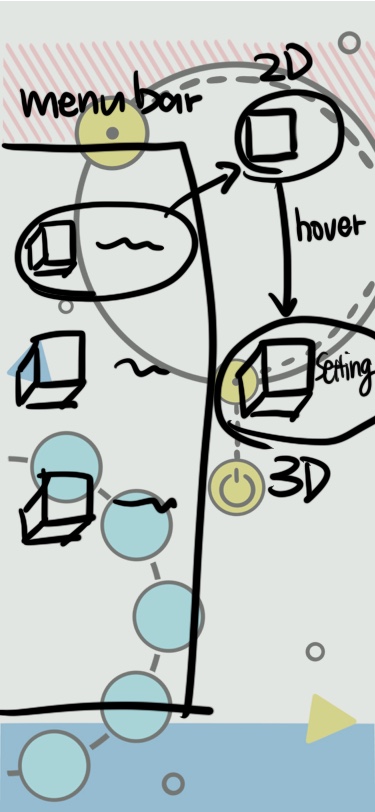 2D
menu bar
hover
Setting
3D